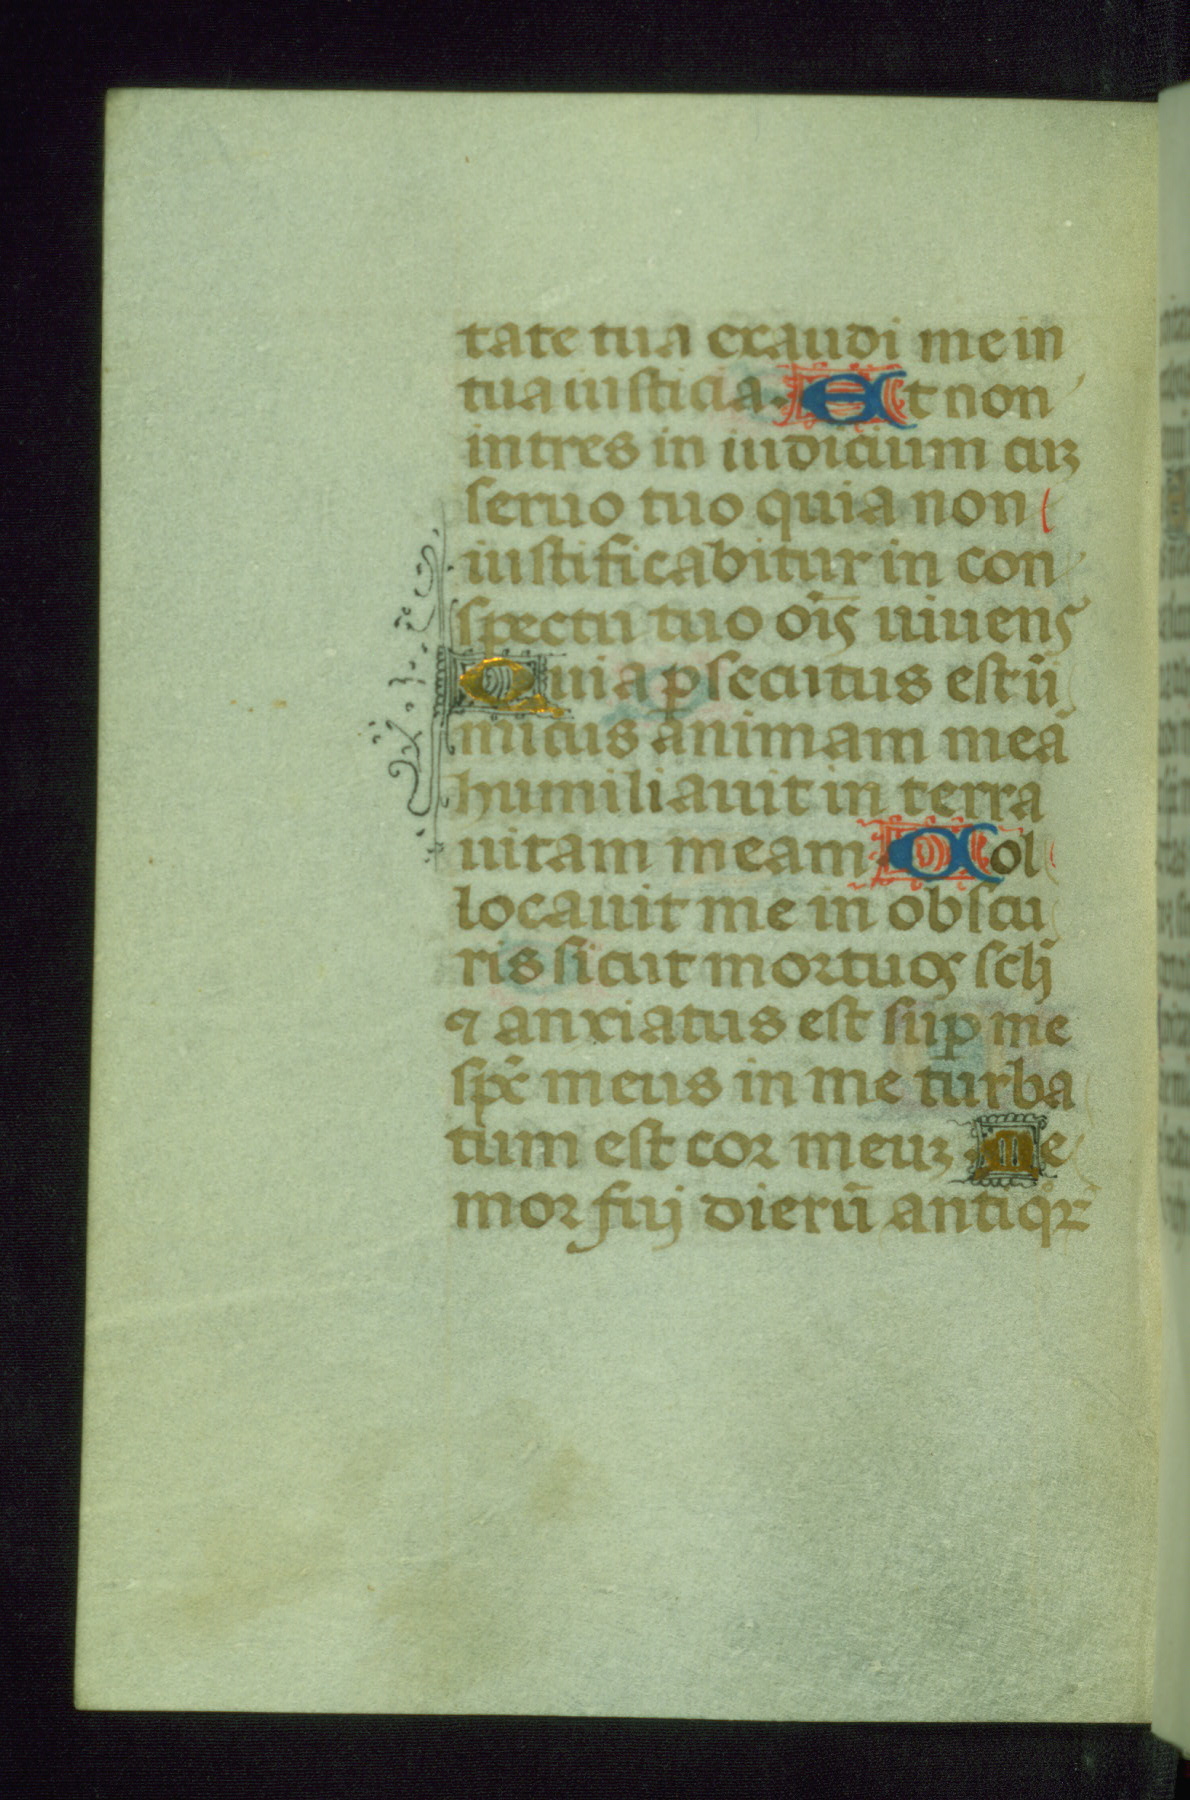 tate tua exaudi me in
tua iusticia. Et non
intres in iudicium cuꝫ
seruo tuo quia non
iustificabitur in con
spectu tuo oīs uiuens
Quia ꝑsecutus est īi
micus animam meā
humiliauit in terra
uitam meam. Col
locauit me in obscu
ris sicut mortuos scłi
⁊ anxiatus est suꝑ me
sp̄s meus in me turba
tum est cor meuꝫ. Me
mor fuij dierū antiqꝝ